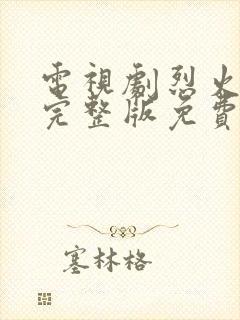 電視劇烈火
完整版免費
塞林格